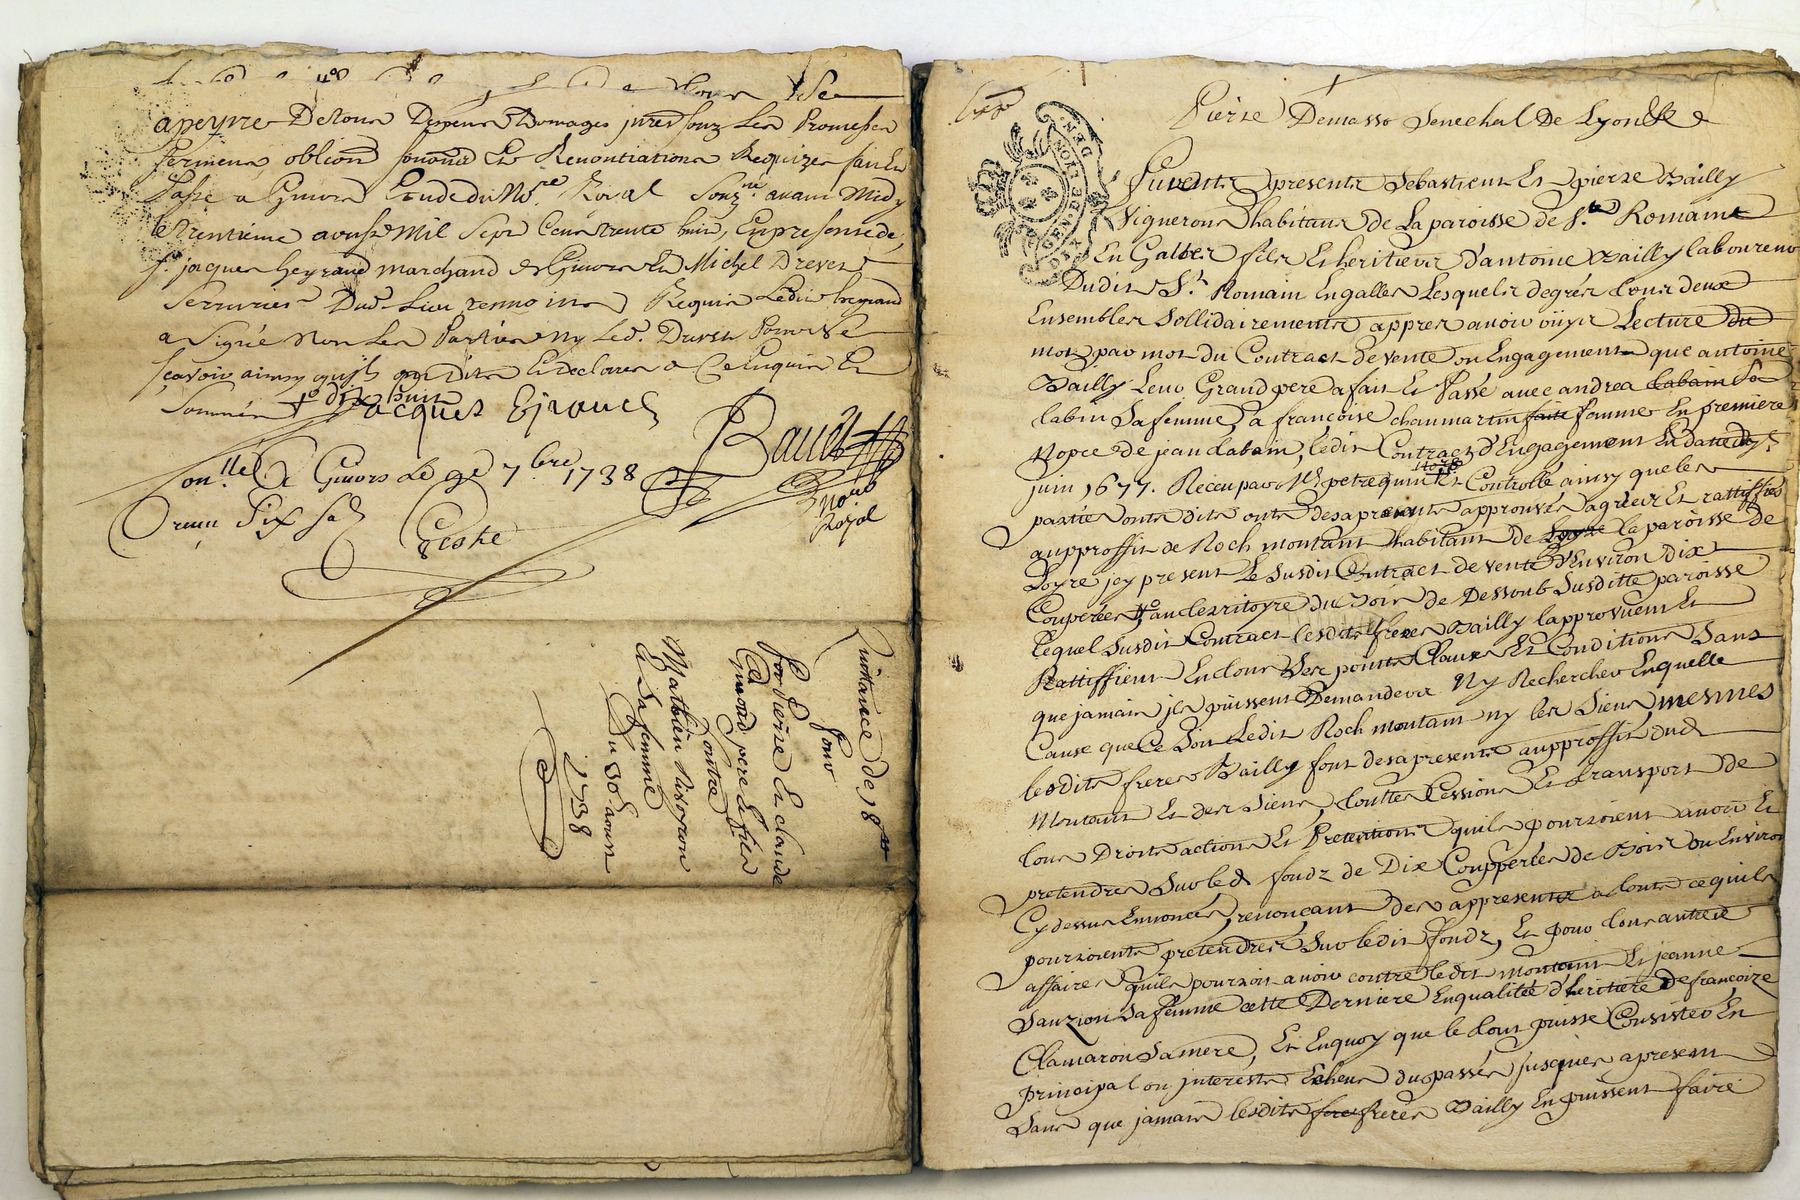 a peyne De tous Depens Domages jnres souz Les Promesses
sermens, oblions soumions Et Renontiations Requizes fait Et
Passé a Givors Etude du No.re Royal Souz.né avant Midy
le trentieme aoust Mil Sept Cens trente huit, En presence de
s.r jacques heyraud marchand de Givors Et Michel Drevet
Serrurier Dud. Lieu temoins Requis Ledit heyraud
a signé Non Les Parties ny Led. Drevet Pour ne
sçavoir ainsy quils ont Dit Et declaré de Ce Enquis Et
Sommés
dix huit
jacques Ejraud
Con.llé A Givors Le 9e 7.bre 1738
Reçu Six s.
Geste
no.re
Royal
Quittance de 18
pour
Pierre Et claude
mond pere & fils
Contre
Mathieu
& sa femme
Du 30 aoust
1738
GEN. DE LYON
Pierre Demasso Senechal De Lyon
Furent presents Sebastient Et pierre Bailly
Vignerons habitans de La paroisse de S.t Romain
En Galler fils Et heritiers d'antoine Bailly laboureur
Dudit S.t Romain En galler Lesquels de gré tous deux
Ensembles Sollidairements appres avoir ouy Lecture du
mot par mot du Contract de vente ou Engagement que antoine
Bailly Leur Grand pere a fait Et Passé avec andrea Labain Sa
labin Sa femme, a françoise chaumartin femme En premiere
Nopce de jean Labain, ledit Contract d'Engagement En datte du 5
juin 1677. Receu par M.e petrequin Et Controllé ainsy que les
partie ont dit ont des a presents approuvés agréer Et rattiffiés
aupproffit de Roch montant habitant de la paroisse de
Loyre jcy present Le Susdit Contract de vente d'Environ dix
Couperées au territoyre du Bois de Dessoub Susditte paroisse
Lequel Susdit Contract lesdits freres Bailly lapprovuent Et
Rattiffient En tous Ses points Clauses Et Conditions Sans
que jamais jls puissent Demander Ny Rechercher En quelle
Cause que Ce Soit Ledit Roch montant ny les Siens mesmes
lesdits freres Bailly font des a present aupproffit dud.
Montant Et des Siens, touttes Cessions Et transport de
tous Droits actions Et Pretentions quils pourroient avoir Et
pretendres Sur led. fondz de Dix Coupperées de Bois ou Environ
Cydessus Ennoncés, renonçant des appresent a tout ce quils
pourroient pretendres Sur ledit fondz, Et pour tous autres
affaires quils pourroit avoir contre ledit montant Et jeanne
Dauzion Sa femme cette Derniere En qualité d'heritiere de françoize
Clamaron Sa mere, Et En quoy que le tout puisse Consister En
principal ou jnterests Echeus du passés jusques a present
Sans que jamais lesdits freres Bailly En puissent faire